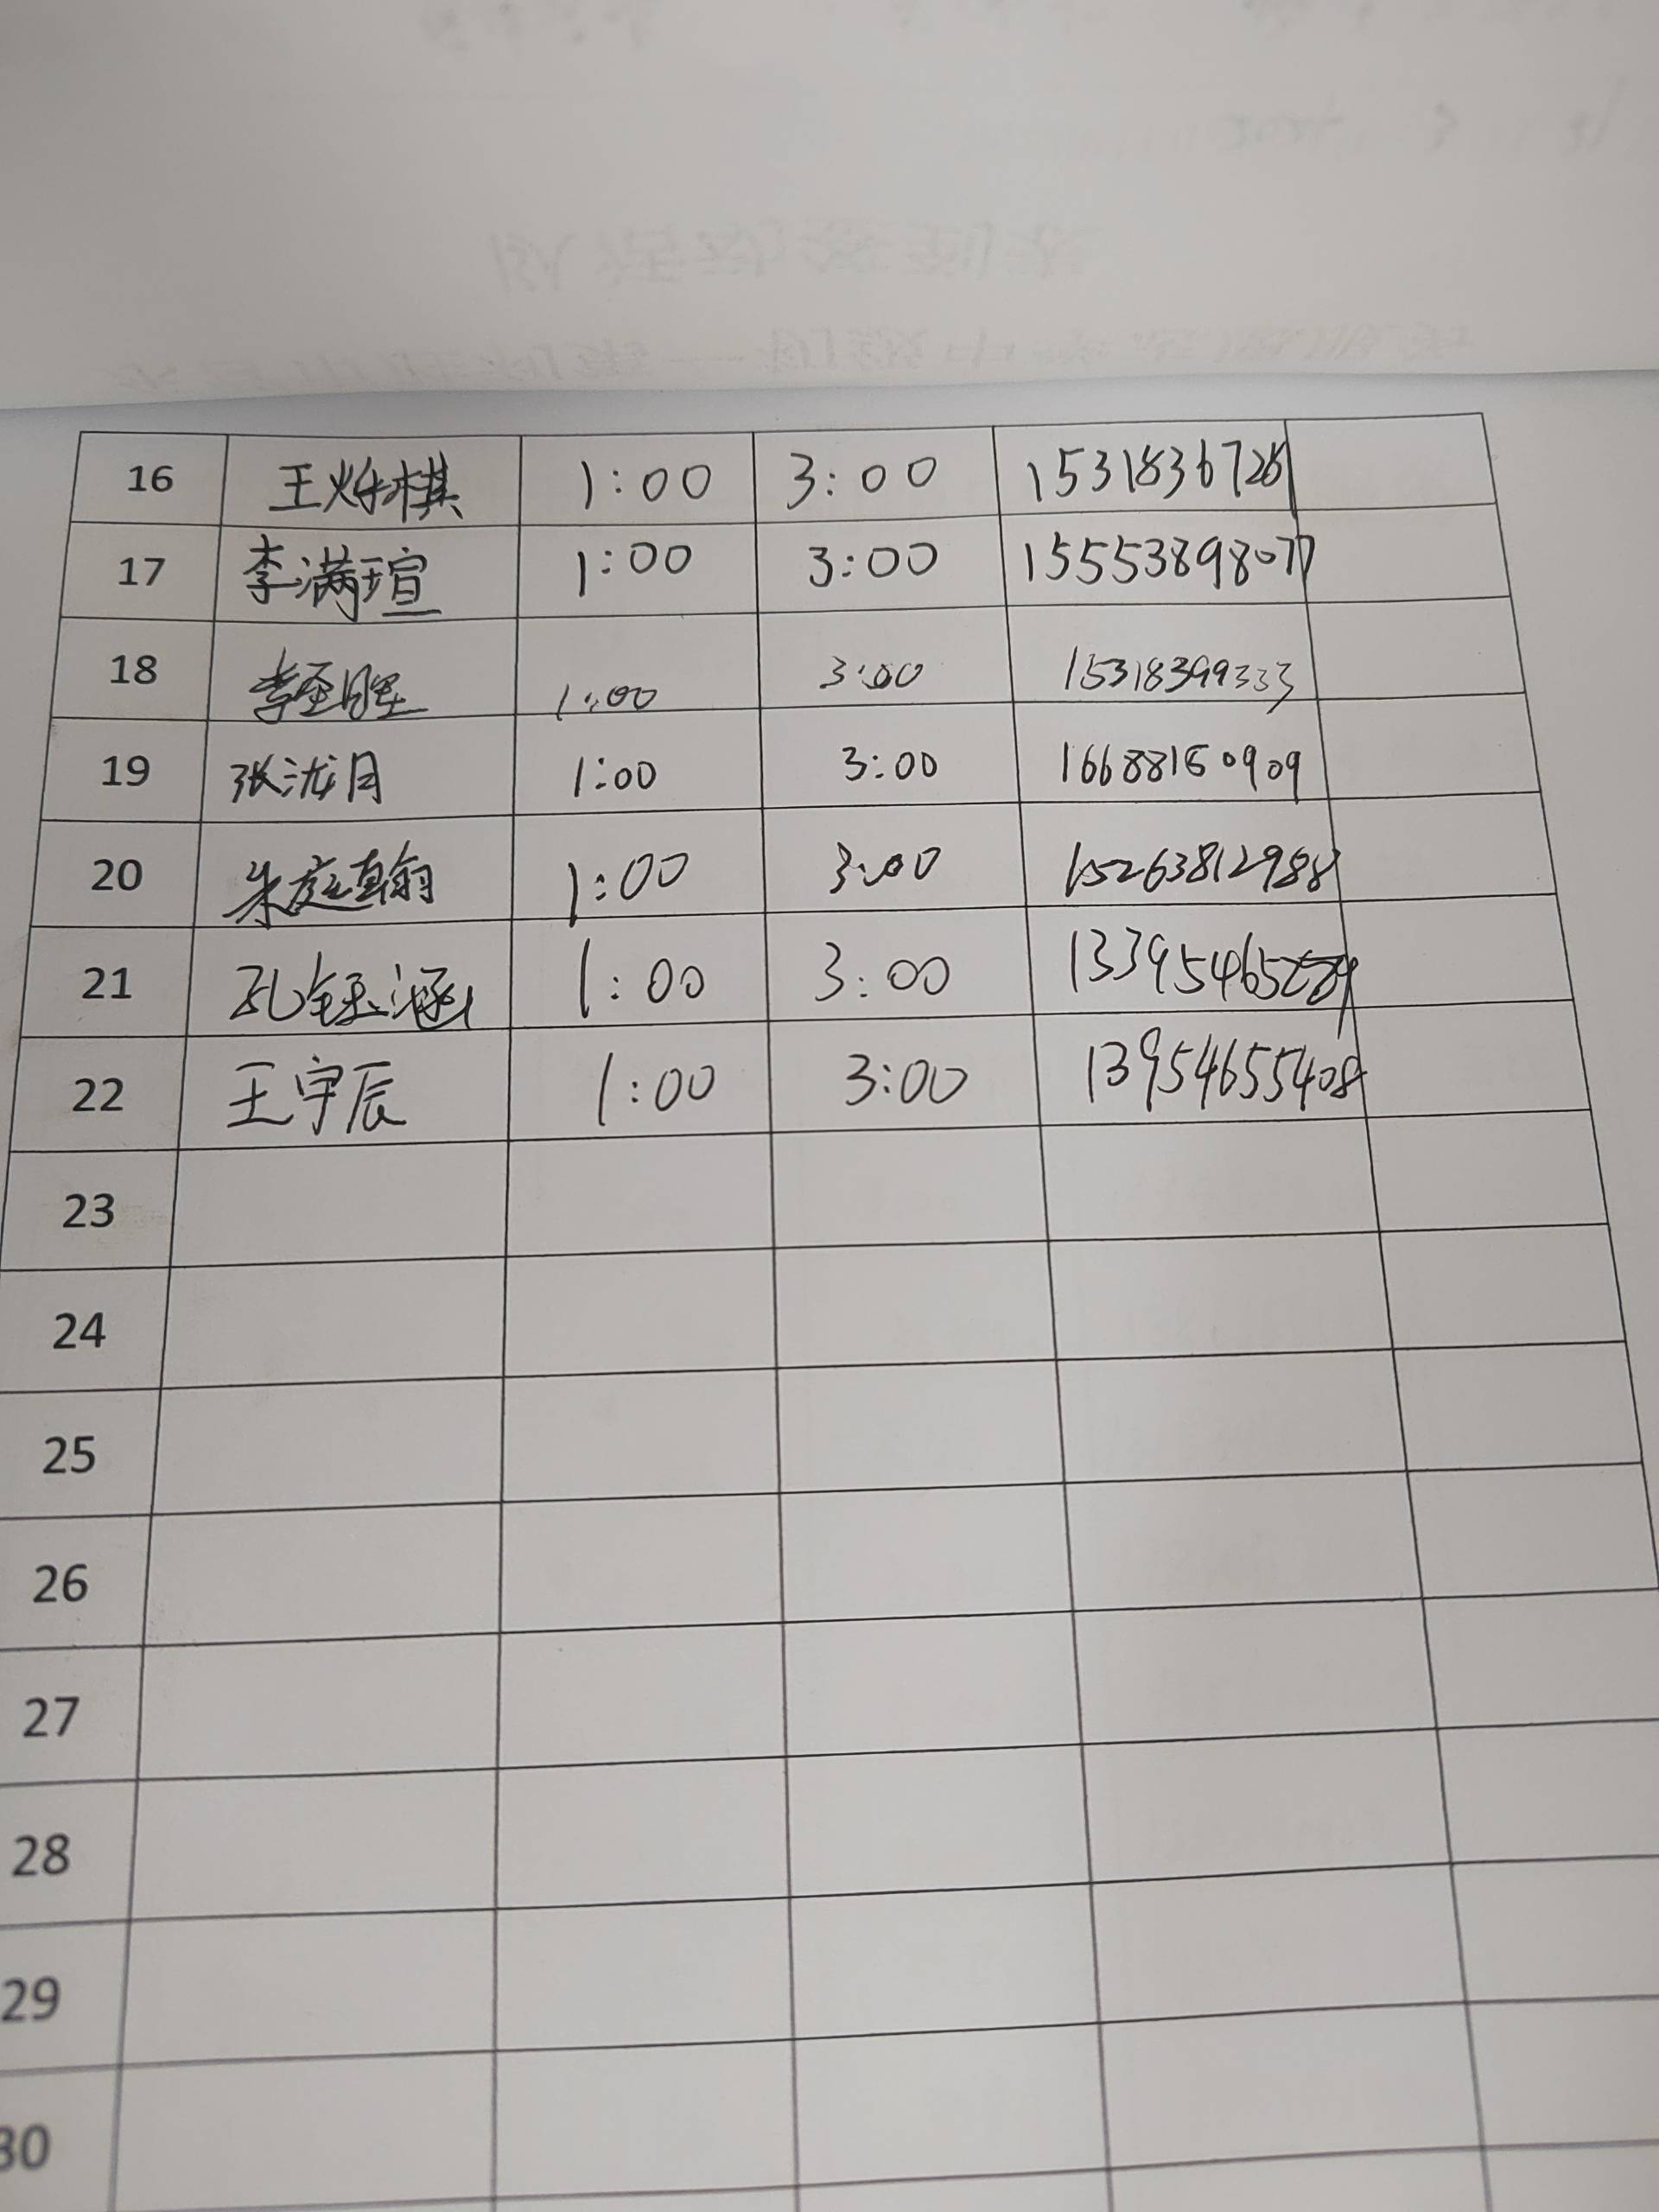 16 王烨棋 1:00 3:00 15318367281
17 李满瑄 1:00 3:00 15553898077
18 李 1:00 3:00 15318399333
19 张泷月 1:00 3:00 16688150909
20 朱庭翰 1:00 3:00 15263812988
21 孔钰涵 1:00 3:00
22 王宇辰 1:00 3:00 13954655408
23
24
25
26
27
28
29
30